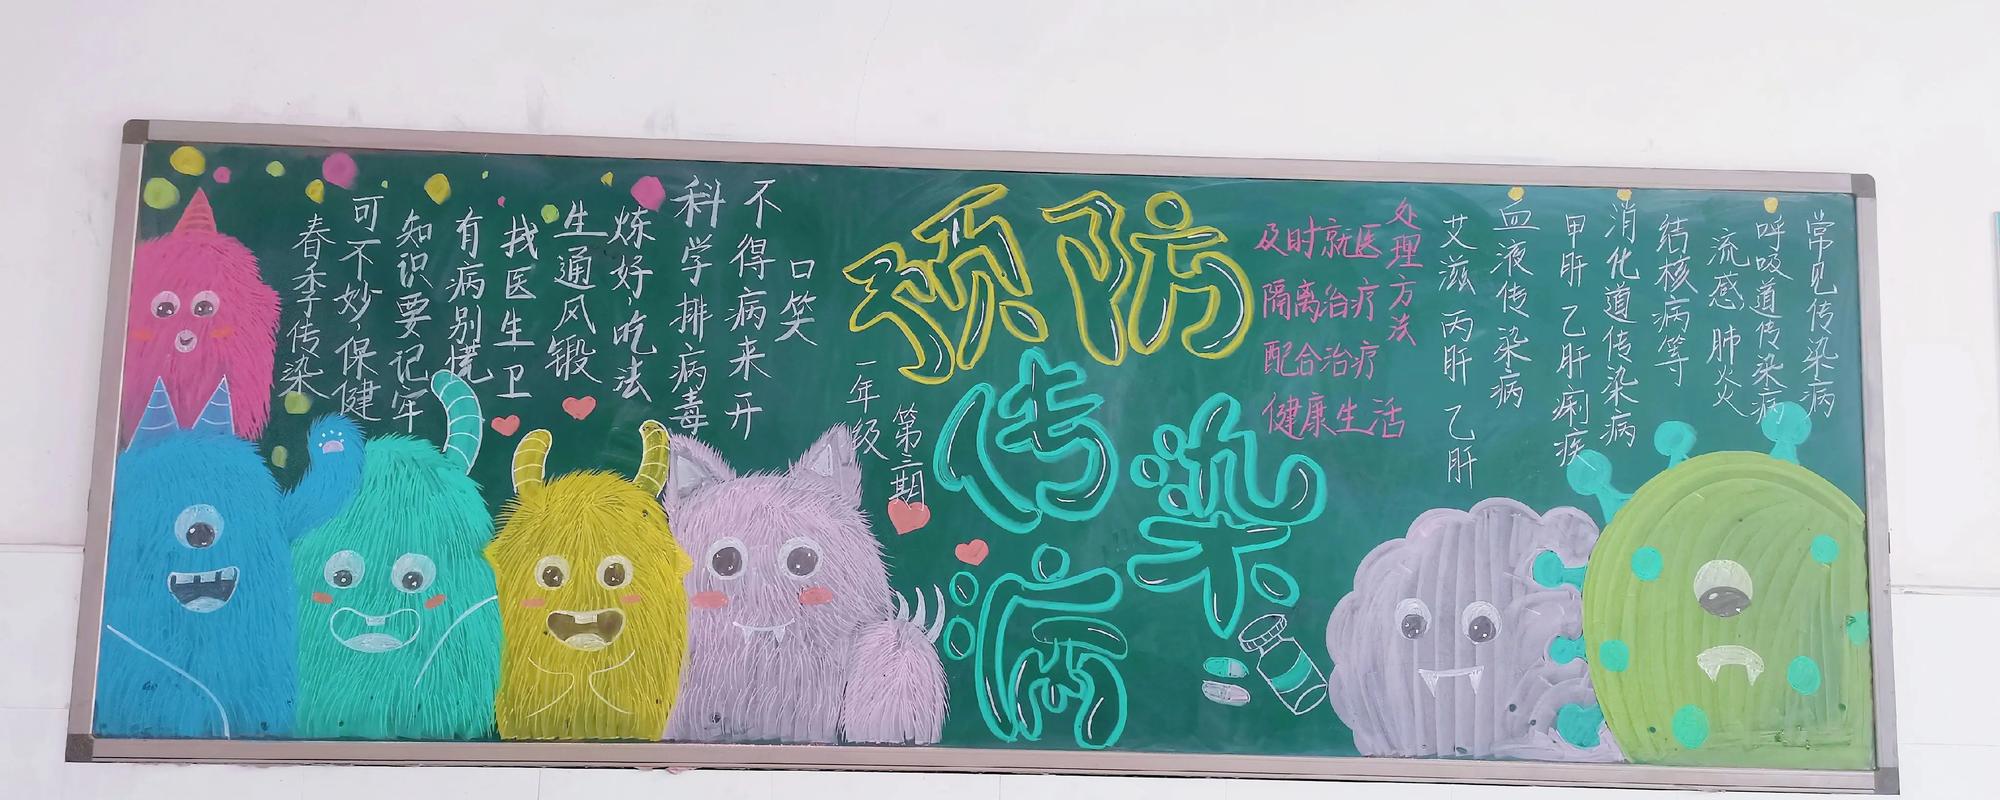 春季传染
可不妙,保健
知识要记牢
有病别慌
找医生,卫
生通风锻
炼好,吃法
科学排病毒
不得病来开
口笑
一年段
第二期
预防
传染
病
处理方法
及时就医
隔离治疗
配合治疗
健康生活
常见传染病
呼吸道传染病
流感 肺炎
结核病等
消化道传染病
甲肝 乙肝 痢疾
血液传染病
艾滋 丙肝 乙肝